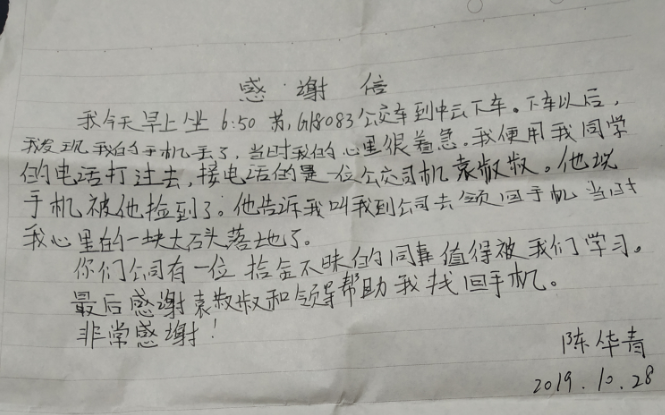 感谢信
我今天早上坐 6:50 苏,G18083公交车到中云下车。下车以后,
我发现我的手机丢了,当时我的心里很着急。我便用我同学
的电话打过去,接电话的是一位公交司机袁叔叔。他说
手机被他捡到了。他告诉我叫我到公司去领回手机 当时
我心里的一块大石头落地了。
你们公司有一位拾金不昧的同事值得被我们学习。
最后感谢袁叔叔和领导帮助我找回手机。
非常感谢!
陈华青
2019.10.28